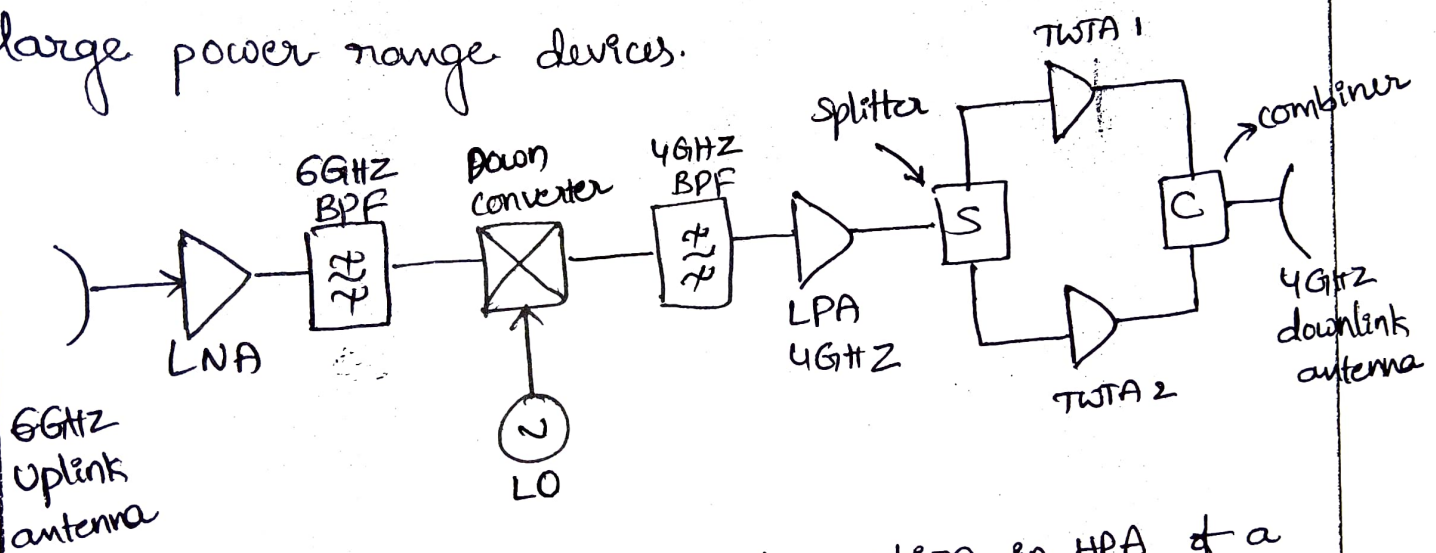 large power range devices.
TWTA 1
Splitter
combiner
6GHZ
BPF
Down
converter
4GHZ
BPF
S
C
LNA
LPA
4GHZ
4GHZ
downlink
antenna
TWTA 2
6GHZ
Uplink
antenna
LO
in HPA of a